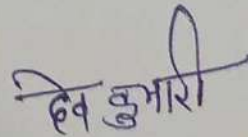 देव कुमारी